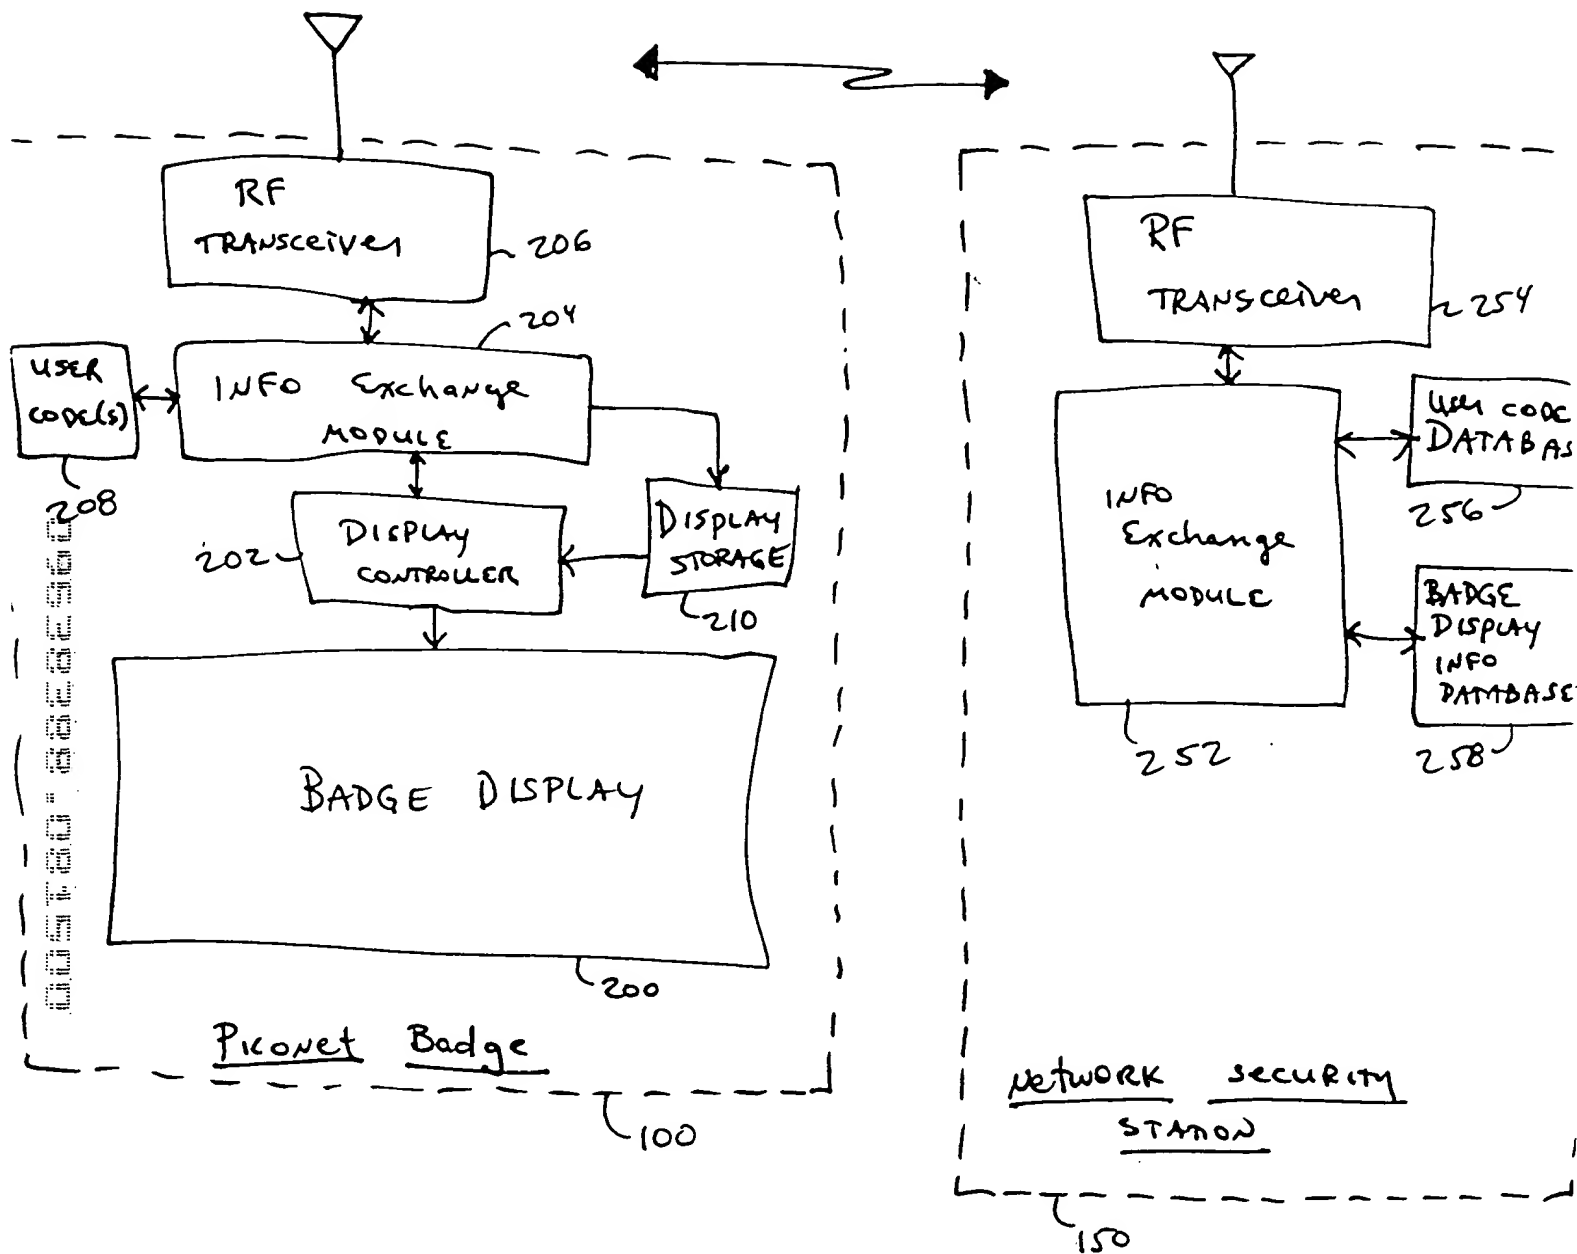 RF
TRANSceiver
206
204
USER
CODE(S)
INFO Exchange
MODULE
208
DISPLAY
CONTROLLER
202
DISPLAY
STORAGE
210
BADGE DISPLAY
200
Piconet Badge
100
RF
TRANSceiver
254
INFO
Exchange
MODULE
252
User CODE
DATABAS
256
BADGE
DISPLAY
INFO
DATABASE
258
NetWORK SECURITY
STATION
150